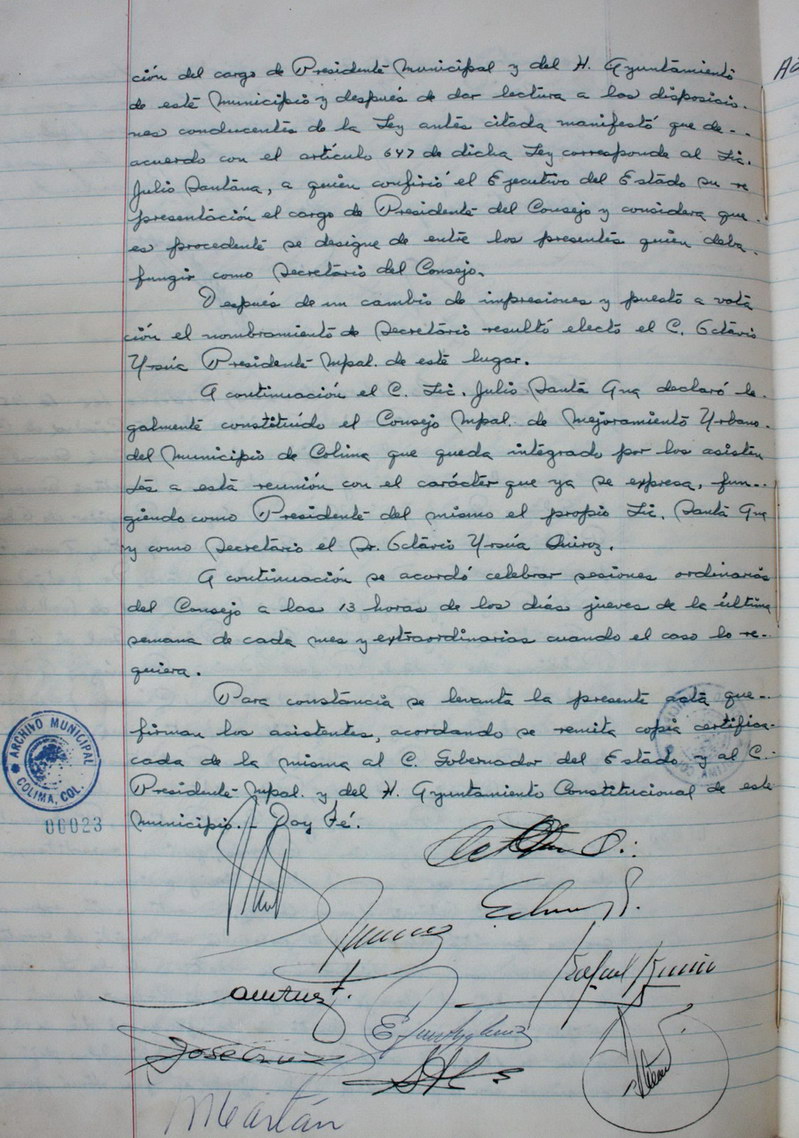 ción del cargo de Presidente Municipal y del H. Ayuntamiento
de este Municipio y después de dar lectura a las disposicio-
nes conducentes de la Ley antes citada manifestó que de--
acuerdo con el artículo 647 de dicha Ley corresponde al Lic.
Julio Santana, a quien confirió el Ejecutivo del Estado su re
presentación el cargo de Presidente del Consejo y considera que-
es procedente se designe de entre los presentes quien deba
fungir como Secretario del Consejo.
Después de un cambio de impresiones y puesto a vota
ción el nombramiento de Secretario resultó electo el C. Octavio
Ursúa Presidente Mpal. de este lugar.
A continuación el C. Lic. Julio Santa Ana declaró le-
galmente constituído el Consejo Mpal. de Mejoramiento Urbano-
del Municipio de Colima que queda integrado por los asisten
tes a esta reunión con el carácter que ya se expresa, fun--
giendo como Presidente del mismo el propio Lic. Santa Ana
y como Secretario el Sr. Octavio Ursúa Quiroz.
A continuación se acordó celebrar sesiones ordinarias
del Consejo a las 13 horas de los días jueves de la última
semana de cada mes y extraordinarias cuando el caso lo re--
quiera.
Para constancia se levanta la presente acta que--
firman los asistentes, acordando se remita copia certifica-
cada de la misma al C. Gobernador del Estado y al C.-
Presidente Mpal. y del H. Ayuntamiento Constitucional de este
Municipio.- Doy Fé.
ARCHIVO MUNICIPAL
COLIMA, COL.
00023
Rafael
José Cruz